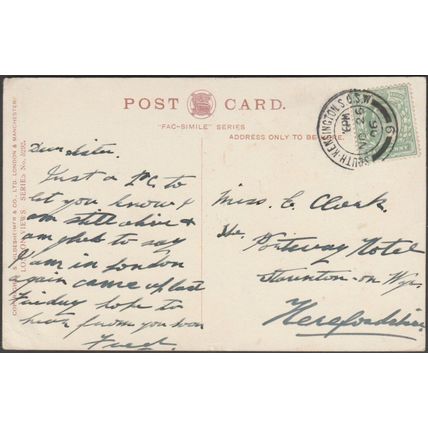 POST CARD.
"FAC-SIMILE" SERIES
ADDRESS ONLY TO BE HERE.
LONDON VIEWS SERIES No.
& CO., LTD. LONDON & MANCHESTER.
SOUTH KENSINGTON S.O. S.W.
6
26
06
Dear Sister.
Just a P.C. to
let you know I
am still alive &
am glad to say
I am in London
again came up last
Friday hope to
hear from you soon
Fred.
Miss. E Clark.
The Portway Hotel
Staunton-on-Wye
Herefordshire